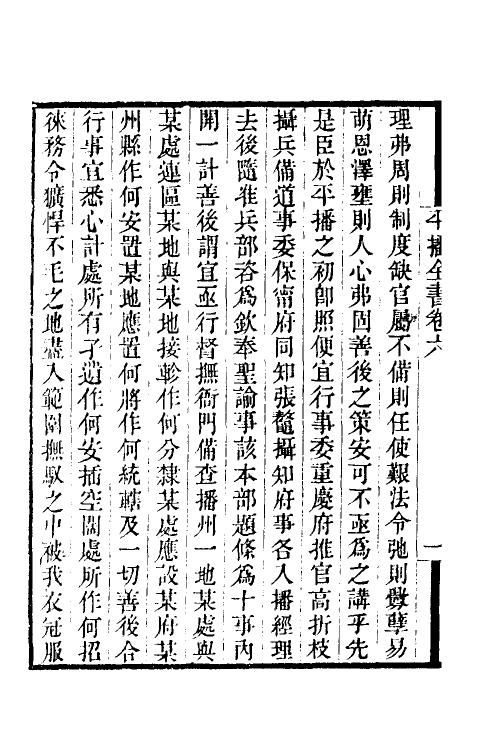 平播全書卷六
一
理弗周則制度缺官屬不備則任使艱法令弛則孽易
萌恩澤壅則人心弗固善後之策安可不亟為之講乎先
是臣於平播之初卽照便宜行事委重慶府推官高折枝
攝兵備道事委保甯府同知張鰲攝知府事各入播經理
去後隨准兵部咨為欽奉聖諭事該本部題條為十事內
開一計善後謂宜亟行督撫衙門備查播州一地某處與
某處連區某地與某地接軫作何分隸某處應設某府某
州縣作何安置某地應置何將作何統轄及一切善後合
行事宜悉心計處所有孑遺作何安插空閒處所作何招
徠務令獷悍不毛之地盡入範圍撫馭之中被我衣冠服